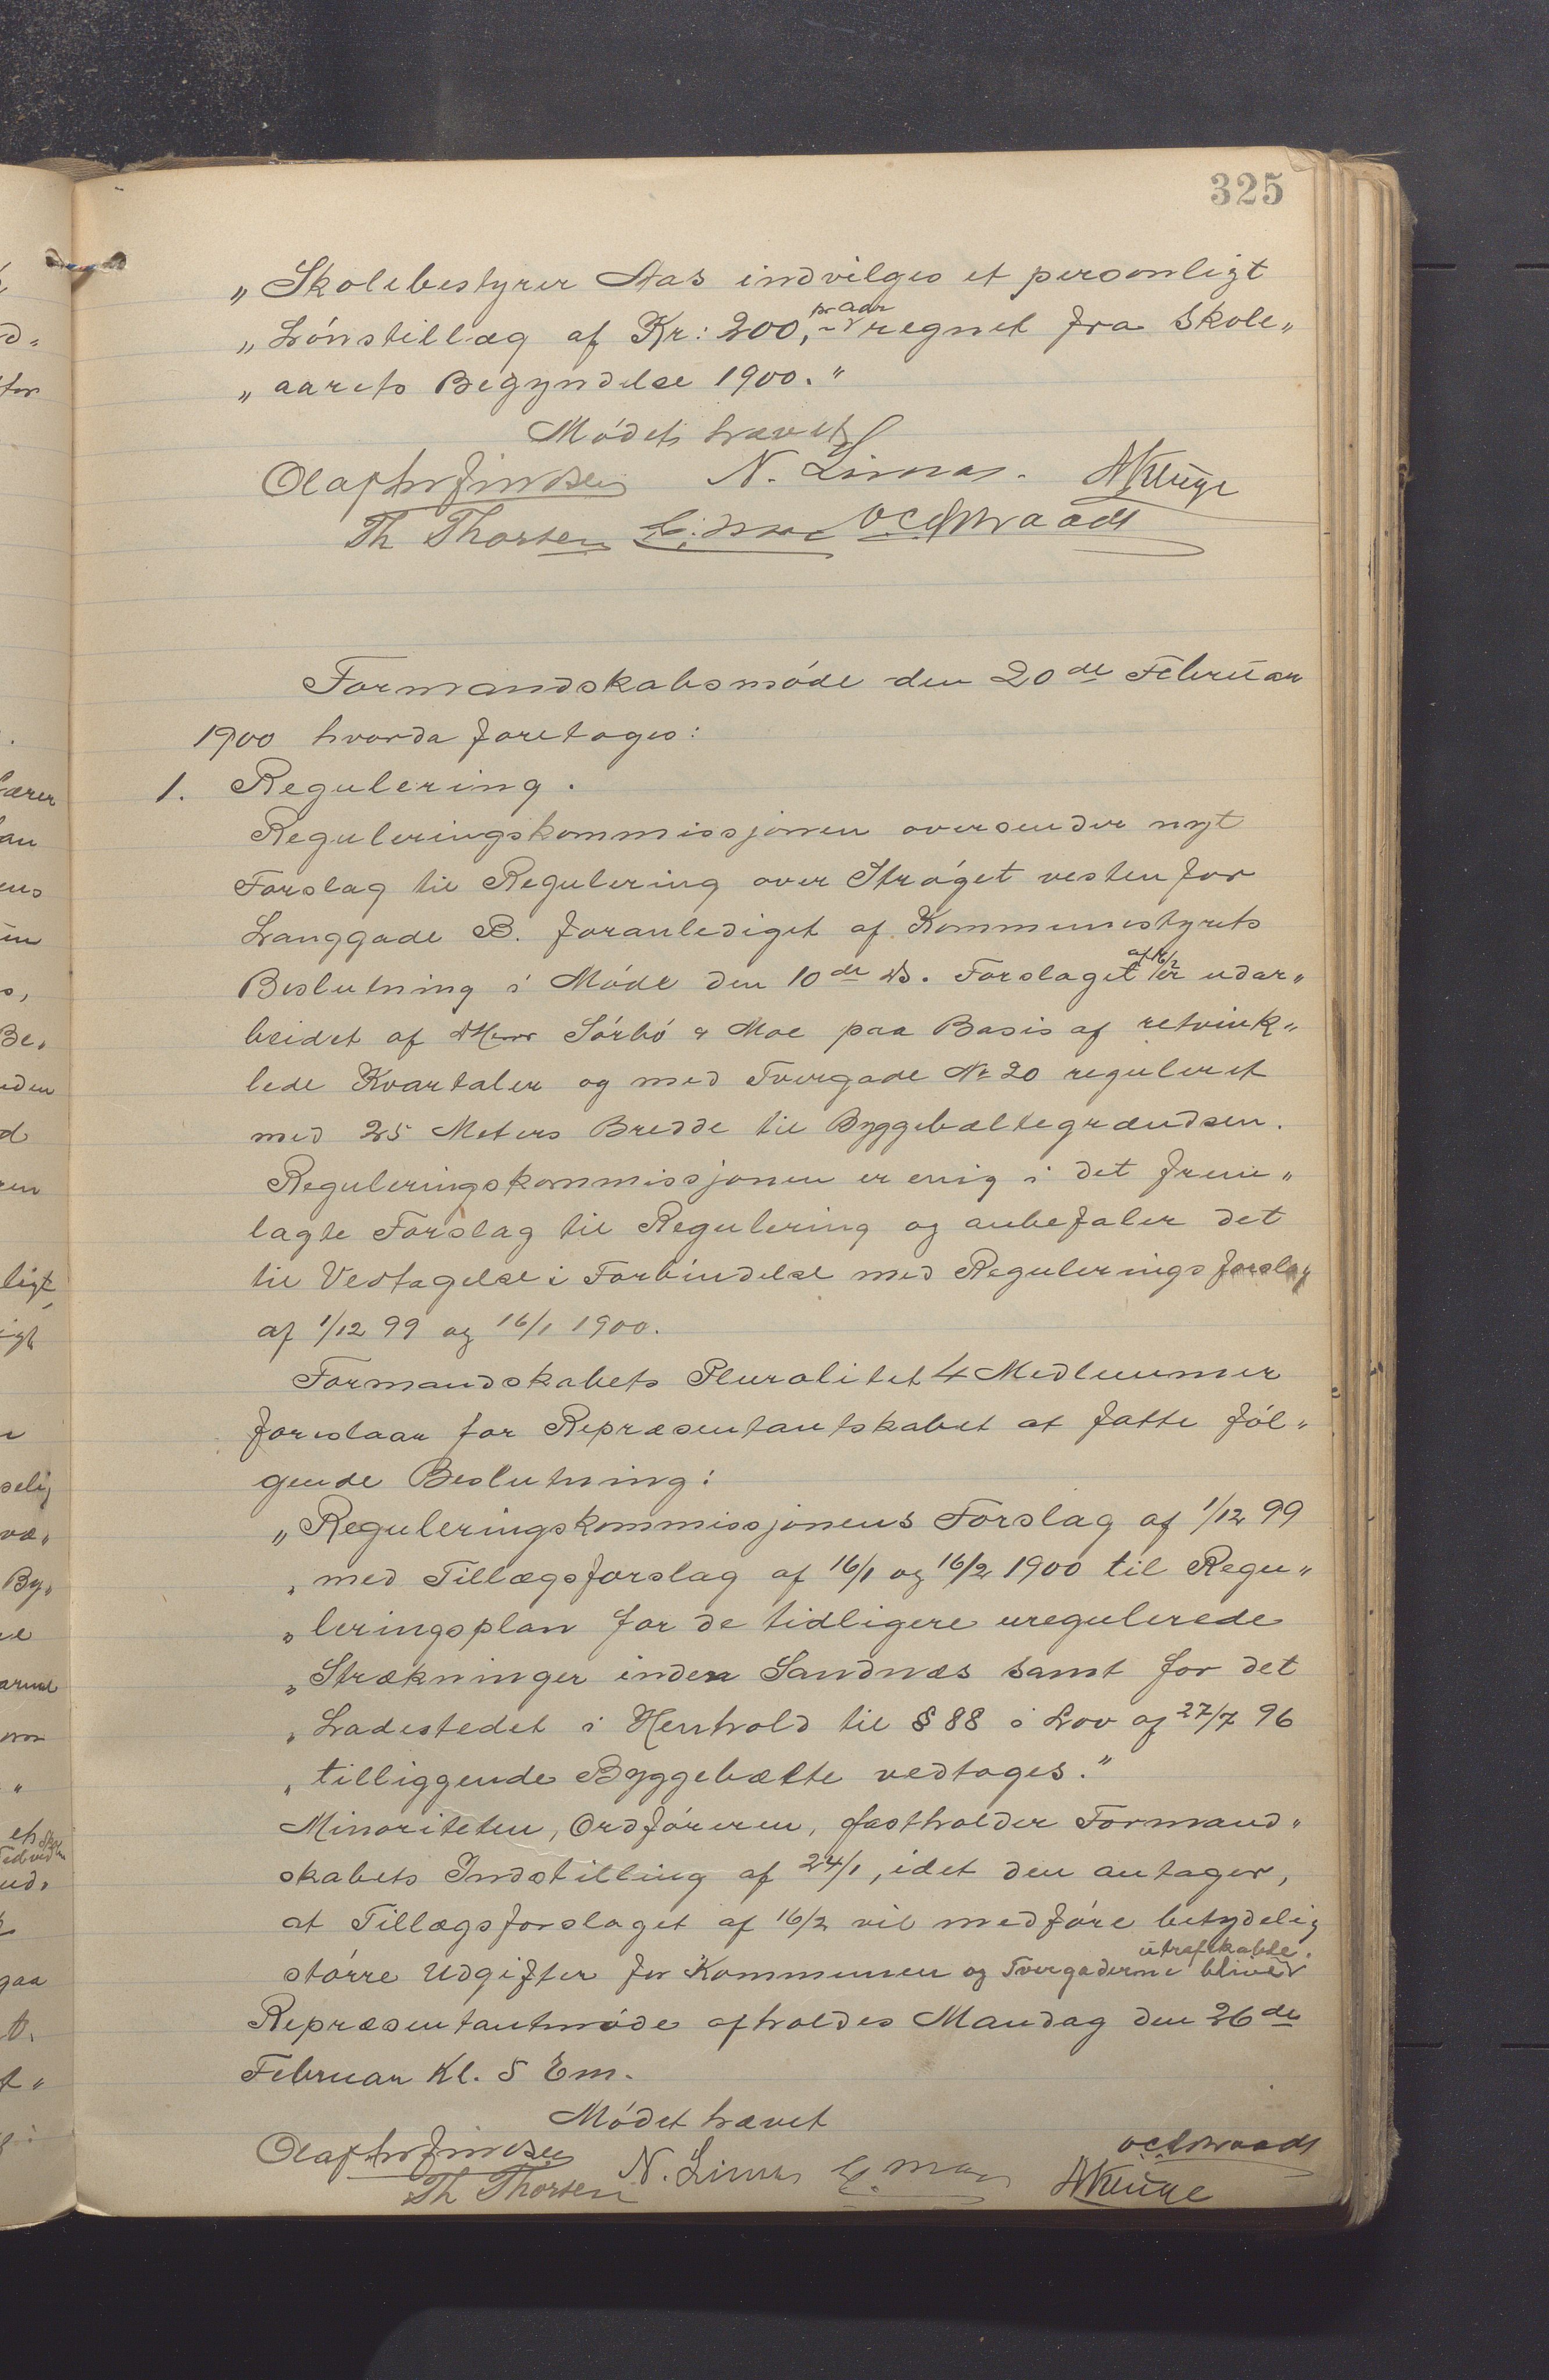 325
„Skolebestyrer Aas indvilges et personligt
„Lönstillæg af Kr: 200,- pr Aar regnet fra Skole„
„aarets Begyndelse 1900."
Mödet hævet
N. Limas.
Th Thorsen
Formandskabsmöde den 20de Februar
1900 hvorda foretoges:
1. Regulering.
Reguleringskommissjonen oversender nyt
Forslag til Regulering over Ströget vestenfor
Langgade B. foranlediget af Kommunestyrets
Beslutning i Möde den 10de ds. Forslaget af 16/2 er udar„
beidet af Sörbö & Moe paa Basis af retvink„
lede Kvartaler og med Tvergade No 20 reguleret
med 25 Meters Bredde til Byggebæltegrændsen.
Reguleringskommissjonen er enig i det frem„
lagte Forslag til Regulering og anbefaler det
til Vedtagelse i Forbindelse med Reguleringsforslag
af 1/12 99 og 16/1 1900.
Formandskabets Pluralitet 4 Medlemmer
foreslaar for Repræsentantskabet at fatte föl„
gende Beslutning:
„Reguleringskommissjonens Forslag af 1/12 99
„med Tillægsforslag af 16/1 og 16/2 1900 til Regu„
„leringsplan for de tidligere uregulerede
„Strækninger inden Sandnæs samt for det
„Ladestedet i Henhold til § 88 i Lov af 27/7 96
„tilliggende Byggebælte vedtages."
Minoriteten, Ordföreren, fastholder Formand„
skabets Indstilling af 24/1, idet den antager,
at Tillægsforslaget af 16/2 vil medföre betydelig
större Udgifter for Kommunen og Tvergaderne bliver utrafikable.
Repræsentantmöde afholdes Mandag den 26de
Februar Kl. 5 Em.
Mödet hævet
Th Thorsen